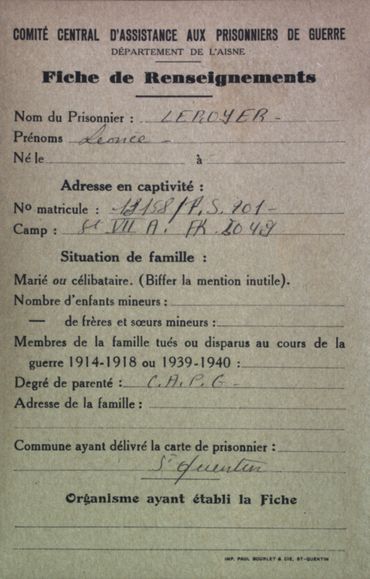 COMITÉ CENTRAL D'ASSISTANCE AUX PRISONNIERS DE GUERRE
DÉPARTEMENT DE L'AISNE
Fiche de Renseignements
Nom du Prisonnier : LEROYER -
Prénoms Léonce -
Né le à
Adresse en captivité :
No matricule : /P.S. 201 -
Camp : St VII A.
Situation de famille :
Marié ou célibataire. (Biffer la mention inutile).
Nombre d'enfants mineurs :
— de frères et sœurs mineurs :
Membres de la famille tués ou disparus au cours de la
guerre 1914-1918 ou 1939-1940 :
Degré de parenté : C.A.P.G -
Adresse de la famille :
Commune ayant délivré la carte de prisonnier :
St Quentin
Organisme ayant établi la Fiche
IMP. PAUL BOURLET & CIE, ST-QUENTIN